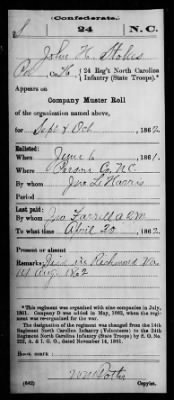 (Confederate.)
S 24 N. C.
John H. Stokes
Co. H, 24 Reg't North Carolina
Infantry (State Troops).*
Appears on
Company Muster Roll
of the organization named above,
for Sept & Oct, 1862.
Enlisted:
When June 6, 1861.
Where Person Co. N.C.
By whom Jno. L. Harris
Period
Last paid:
By whom Jno. Farrell A.Q.M.
To what time April 30, 1862.
Present or absent
Remarks: Died in Richmond Va
Aug 1862
*This regiment was organized with nine companies in July,
1861. Company D was added in May, 1862, when the regi-
ment was re-organized for the war.
The designation of the regiment was changed from the 14th
Regiment North Carolina Infantry (Volunteers) to the 24th
Regiment North Carolina Infantry (State Troops) by S. O. No.
A. & I. G. O., dated November 14, 1861.
Book mark:
(642)
Copyist.